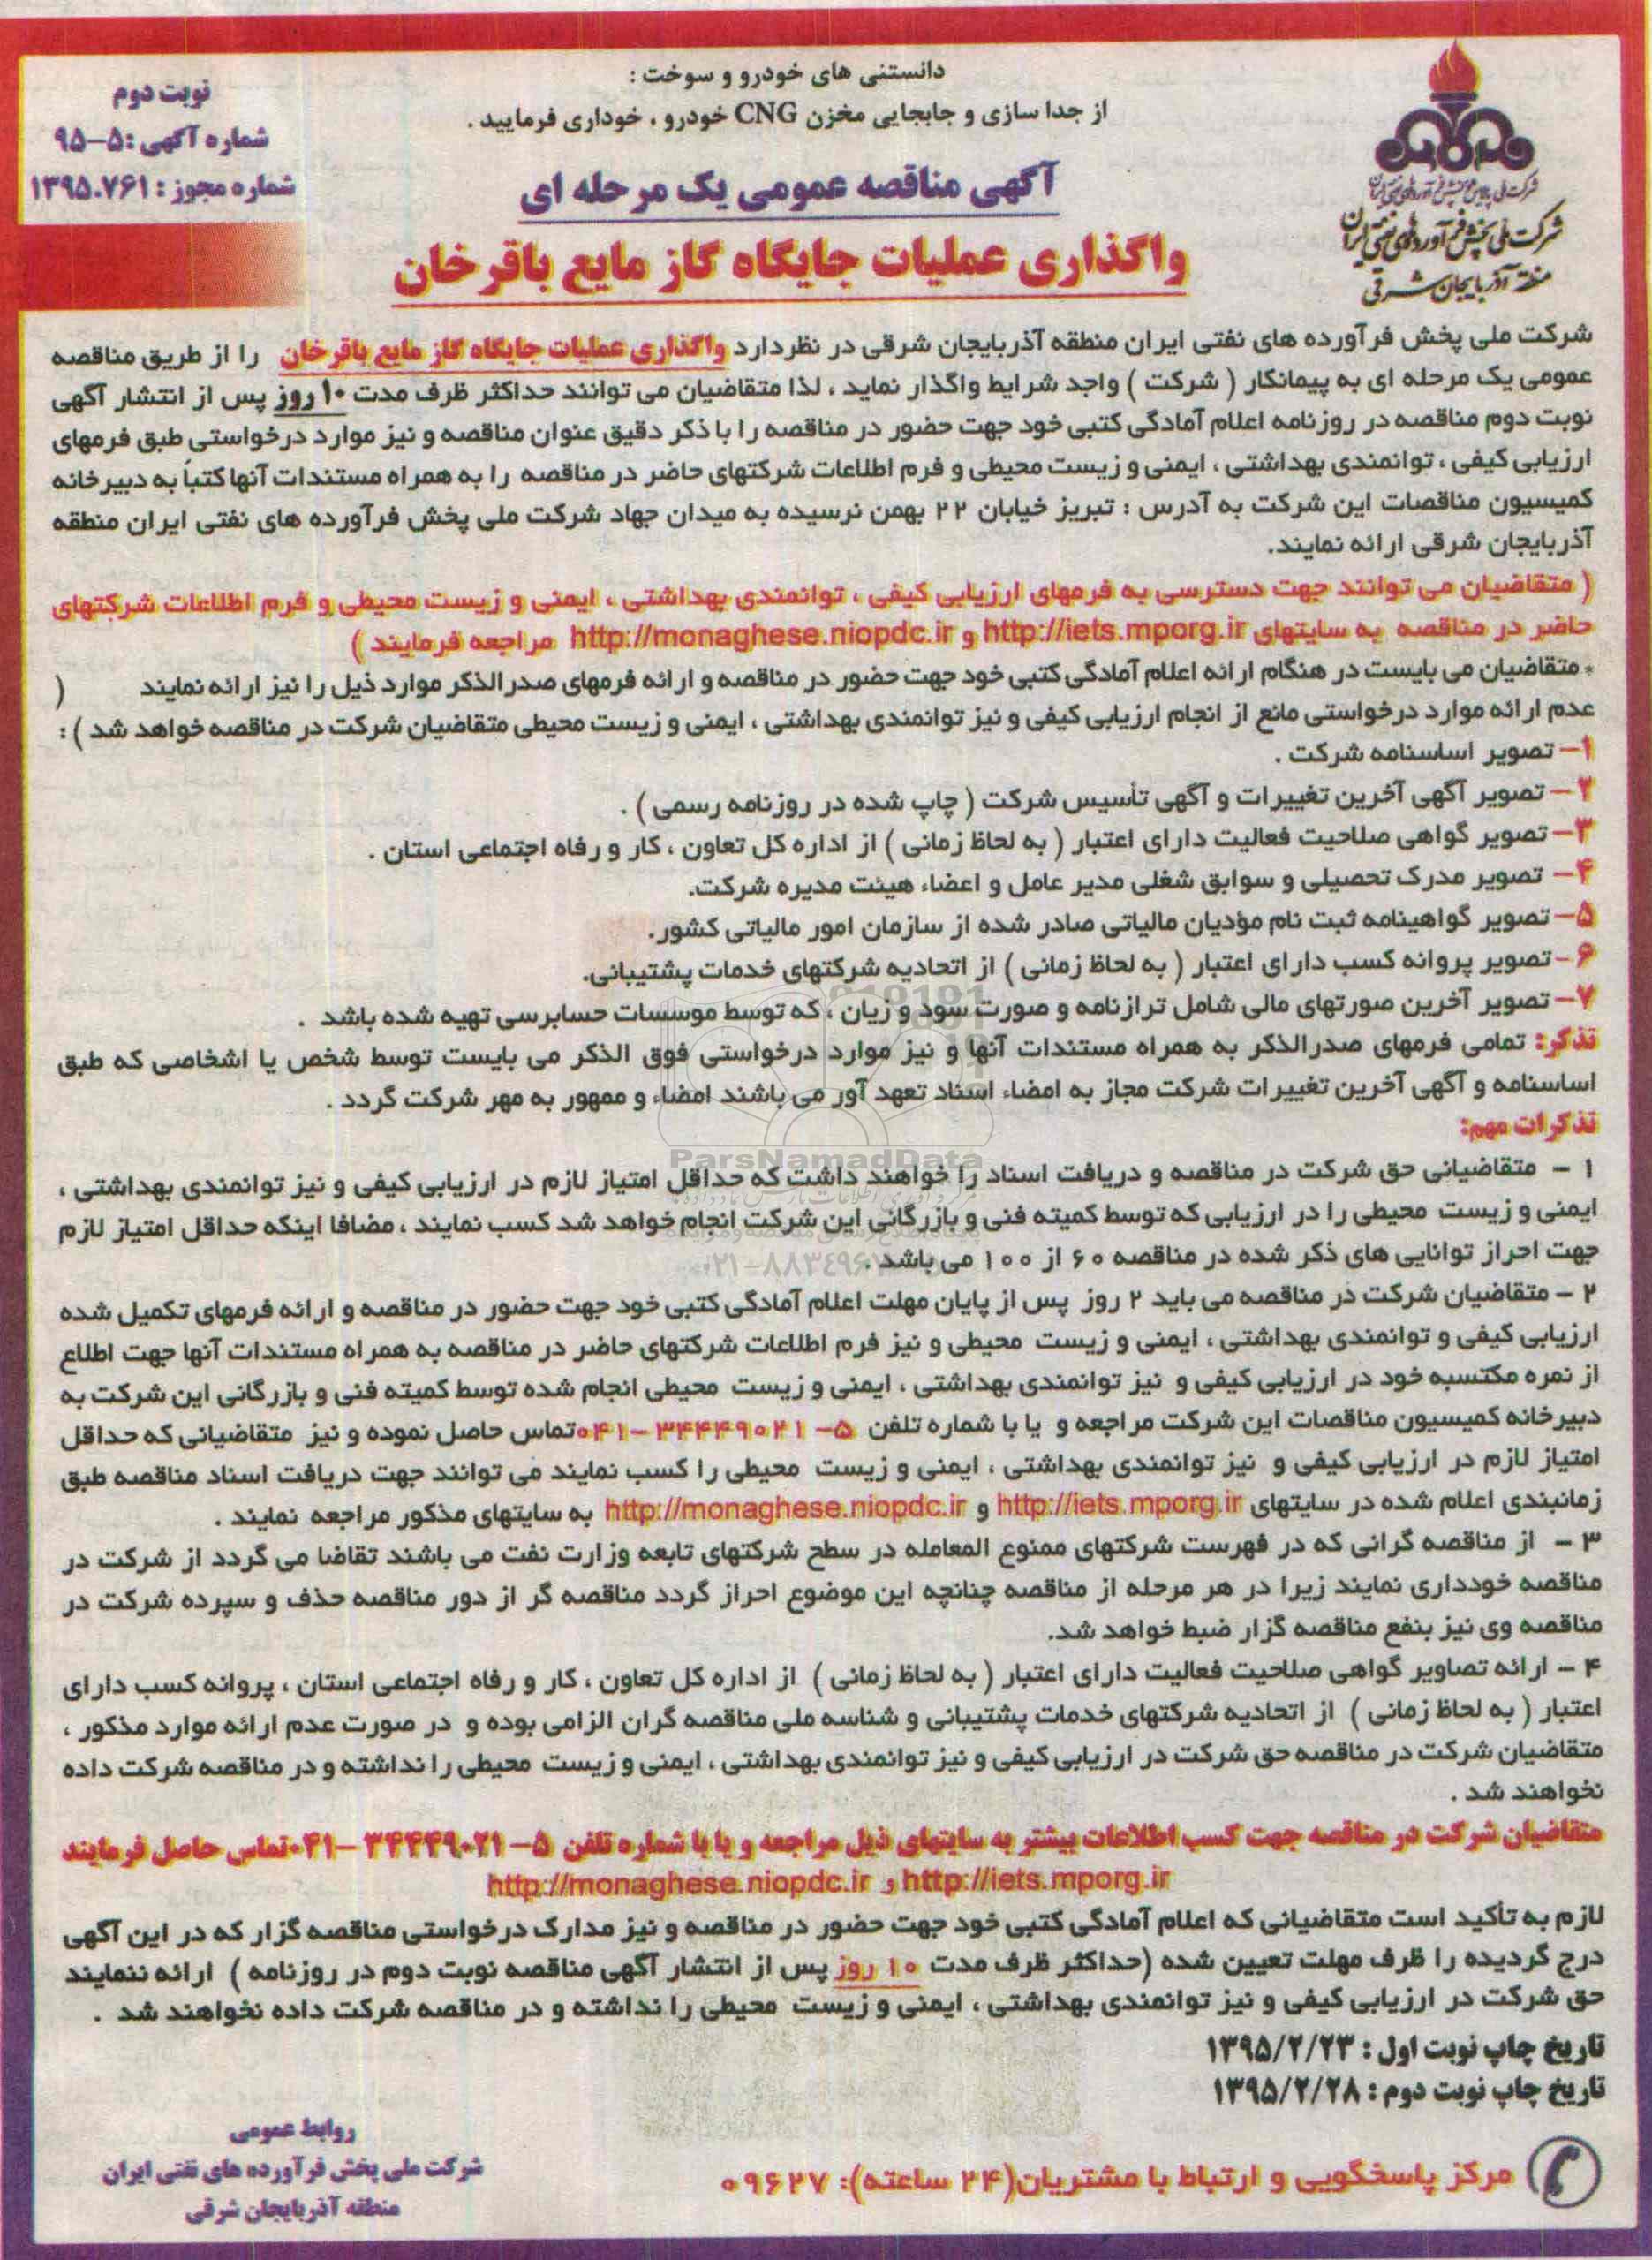 دانستنی های خودرو و سوخت :
از جدا سازی و جابجایی مخزن CNG خودرو ، خوداری فرمایید .
نوبت دوم
شماره آگهی :۵-۹۵
شماره مجوز : ۱۳۹۵.۷۶۱
شرکت ملی پالایش و پخش فرآورده‌های نفتی ایران
شرکت ملی پخش فرآورده‌های نفتی ایران
منطقه آذربایجان شرقی
آگهی مناقصه عمومی یک مرحله ای
واگذاری عملیات جایگاه گاز مایع باقرخان
شرکت ملی پخش فرآورده های نفتی ایران منطقه آذربایجان شرقی در نظردارد واگذاری عملیات جایگاه گاز مایع باقرخان را از طریق مناقصه
عمومی یک مرحله ای به پیمانکار ( شرکت ) واجد شرایط واگذار نماید ، لذا متقاضیان می توانند حداکثر ظرف مدت ۱۰ روز پس از انتشار آگهی
نوبت دوم مناقصه در روزنامه اعلام آمادگی کتبی خود جهت حضور در مناقصه را با ذکر دقیق عنوان مناقصه و نیز موارد درخواستی طبق فرمهای
ارزیابی کیفی ، توانمندی بهداشتی ، ایمنی و زیست محیطی و فرم اطلاعات شرکتهای حاضر در مناقصه را به همراه مستندات آنها کتباً به دبیرخانه
کمیسیون مناقصات این شرکت به آدرس : تبریز خیابان ۲۲ بهمن نرسیده به میدان جهاد شرکت ملی پخش فرآورده های نفتی ایران منطقه
آذربایجان شرقی ارائه نمایند.
( متقاضیان می توانند جهت دسترسی به فرمهای ارزیابی کیفی ، توانمندی بهداشتی ، ایمنی و زیست محیطی و فرم اطلاعات شرکتهای
حاضر در مناقصه به سایتهای http://iets.mporg.ir و http://monaghese.niopdc.ir مراجعه فرمایند )
* متقاضیان می بایست در هنگام ارائه اعلام آمادگی کتبی خود جهت حضور در مناقصه و ارائه فرمهای صدرالذکر موارد ذیل را نیز ارائه نمایند (
عدم ارائه موارد درخواستی مانع از انجام ارزیابی کیفی و نیز توانمندی بهداشتی ، ایمنی و زیست محیطی متقاضیان شرکت در مناقصه خواهد شد ) :
۱- تصویر اساسنامه شرکت .
۲- تصویر آگهی آخرین تغییرات و آگهی تأسیس شرکت ( چاپ شده در روزنامه رسمی ) .
۳- تصویر گواهی صلاحیت فعالیت دارای اعتبار ( به لحاظ زمانی ) از اداره کل تعاون ، کار و رفاه اجتماعی استان .
۴- تصویر مدرک تحصیلی و سوابق شغلی مدیر عامل و اعضاء هیئت مدیره شرکت.
۵- تصویر گواهینامه ثبت نام مؤدیان مالیاتی صادر شده از سازمان امور مالیاتی کشور.
۶- تصویر پروانه کسب دارای اعتبار ( به لحاظ زمانی ) از اتحادیه شرکتهای خدمات پشتیبانی.
۷- تصویر آخرین صورتهای مالی شامل ترازنامه و صورت سود و زیان ، که توسط موسسات حسابرسی تهیه شده باشد .
تذکر: تمامی فرمهای صدرالذکر به همراه مستندات آنها و نیز موارد درخواستی فوق الذکر می بایست توسط شخص یا اشخاصی که طبق
اساسنامه و آگهی آخرین تغییرات شرکت مجاز به امضاء اسناد تعهد آور می باشند امضاء و ممهور به مهر شرکت گردد .
تذکرات مهم:
۱ - متقاضیانی حق شرکت در مناقصه و دریافت اسناد را خواهند داشت که حداقل امتیاز لازم در ارزیابی کیفی و نیز توانمندی بهداشتی ،
ایمنی و زیست محیطی را در ارزیابی که توسط کمیته فنی و بازرگانی این شرکت انجام خواهد شد کسب نمایند ، مضافا اینکه حداقل امتیاز لازم
جهت احراز توانایی های ذکر شده در مناقصه ۶۰ از ۱۰۰ می باشد .
۲ - متقاضیان شرکت در مناقصه می باید ۲ روز پس از پایان مهلت اعلام آمادگی کتبی خود جهت حضور در مناقصه و ارائه فرمهای تکمیل شده
ارزیابی کیفی و توانمندی بهداشتی ، ایمنی و زیست محیطی و نیز فرم اطلاعات شرکتهای حاضر در مناقصه به همراه مستندات آنها جهت اطلاع
از نمره مکتسبه خود در ارزیابی کیفی و نیز توانمندی بهداشتی ، ایمنی و زیست محیطی انجام شده توسط کمیته فنی و بازرگانی این شرکت به
دبیرخانه کمیسیون مناقصات این شرکت مراجعه و یا با شماره تلفن ۵- ۳۴۴۴۹۰۲۱ -۰۴۱تماس حاصل نموده و نیز متقاضیانی که حداقل
امتیاز لازم در ارزیابی کیفی و نیز توانمندی بهداشتی ، ایمنی و زیست محیطی را کسب نمایند می توانند جهت دریافت اسناد مناقصه طبق
زمانبندی اعلام شده در سایتهای http://iets.mporg.ir و http://monaghese.niopdc.ir به سایتهای مذکور مراجعه نمایند .
۳ - از مناقصه گرانی که در فهرست شرکتهای ممنوع المعامله در سطح شرکتهای تابعه وزارت نفت می باشند تقاضا می گردد از شرکت در
مناقصه خودداری نمایند زیرا در هر مرحله از مناقصه چنانچه این موضوع احراز گردد مناقصه گر از دور مناقصه حذف و سپرده شرکت در
مناقصه وی نیز بنفع مناقصه گزار ضبط خواهد شد.
۴ - ارائه تصاویر گواهی صلاحیت فعالیت دارای اعتبار ( به لحاظ زمانی ) از اداره کل تعاون ، کار و رفاه اجتماعی استان ، پروانه کسب دارای
اعتبار ( به لحاظ زمانی ) از اتحادیه شرکتهای خدمات پشتیبانی و شناسه ملی مناقصه گران الزامی بوده و در صورت عدم ارائه موارد مذکور ،
متقاضیان شرکت در مناقصه حق شرکت در ارزیابی کیفی و نیز توانمندی بهداشتی ، ایمنی و زیست محیطی را نداشته و در مناقصه شرکت داده
نخواهند شد .
متقاضیان شرکت در مناقصه جهت کسب اطلاعات بیشتر به سایتهای ذیل مراجعه و یا با شماره تلفن ۵- ۳۴۴۴۹۰۲۱ -۰۴۱تماس حاصل فرمایند
http://iets.mporg.ir و http://monaghese.niopdc.ir
لازم به تأکید است متقاضیانی که اعلام آمادگی کتبی خود جهت حضور در مناقصه و نیز مدارک درخواستی مناقصه گزار که در این آگهی
درج گردیده را ظرف مهلت تعیین شده (حداکثر ظرف مدت ۱۰ روز پس از انتشار آگهی مناقصه نوبت دوم در روزنامه ) ارائه ننمایند
حق شرکت در ارزیابی کیفی و نیز توانمندی بهداشتی ، ایمنی و زیست محیطی را نداشته و در مناقصه شرکت داده نخواهند شد .
تاریخ چاپ نوبت اول : ۱۳۹۵/۲/۲۳
تاریخ چاپ نوبت دوم : ۱۳۹۵/۲/۲۸
مرکز پاسخگویی و ارتباط با مشتریان(۲۴ ساعته): ۰۹۶۲۷
روابط عمومی
شرکت ملی پخش فرآورده های نفتی ایران
منطقه آذربایجان شرقی
ParsNamadData